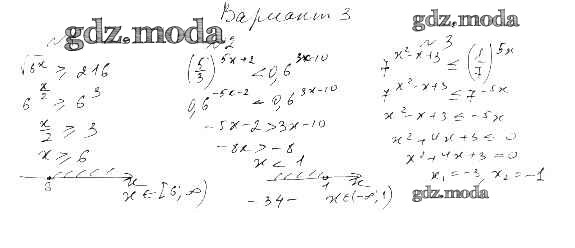 Вариант 3
gdz.moda
gdz.moda
№2
№3
√6^x ≥ 216
6^(x/2) ≥ 6^3
x/2 ≥ 3
x ≥ 6
6
x ∈ [6; ∞)
(5/3)^(5x+2) < 0,6^(3x-10)
0,6^(-5x-2) < 0,6^(3x-10)
-5x-2>3x-10
-8x>-8
x<1
1
x
x∈(-∞; 1)
-34-
7^(x²-x+3) ≤ (1/7)^(5x)
7^(x²-x+3) ≤ 7^(-5x)
x²-x+3 ≤ -5x
x²+4x+3 ≤ 0
x²+4x+3=0
x₁=-3, x₂=-1
gdz.moda